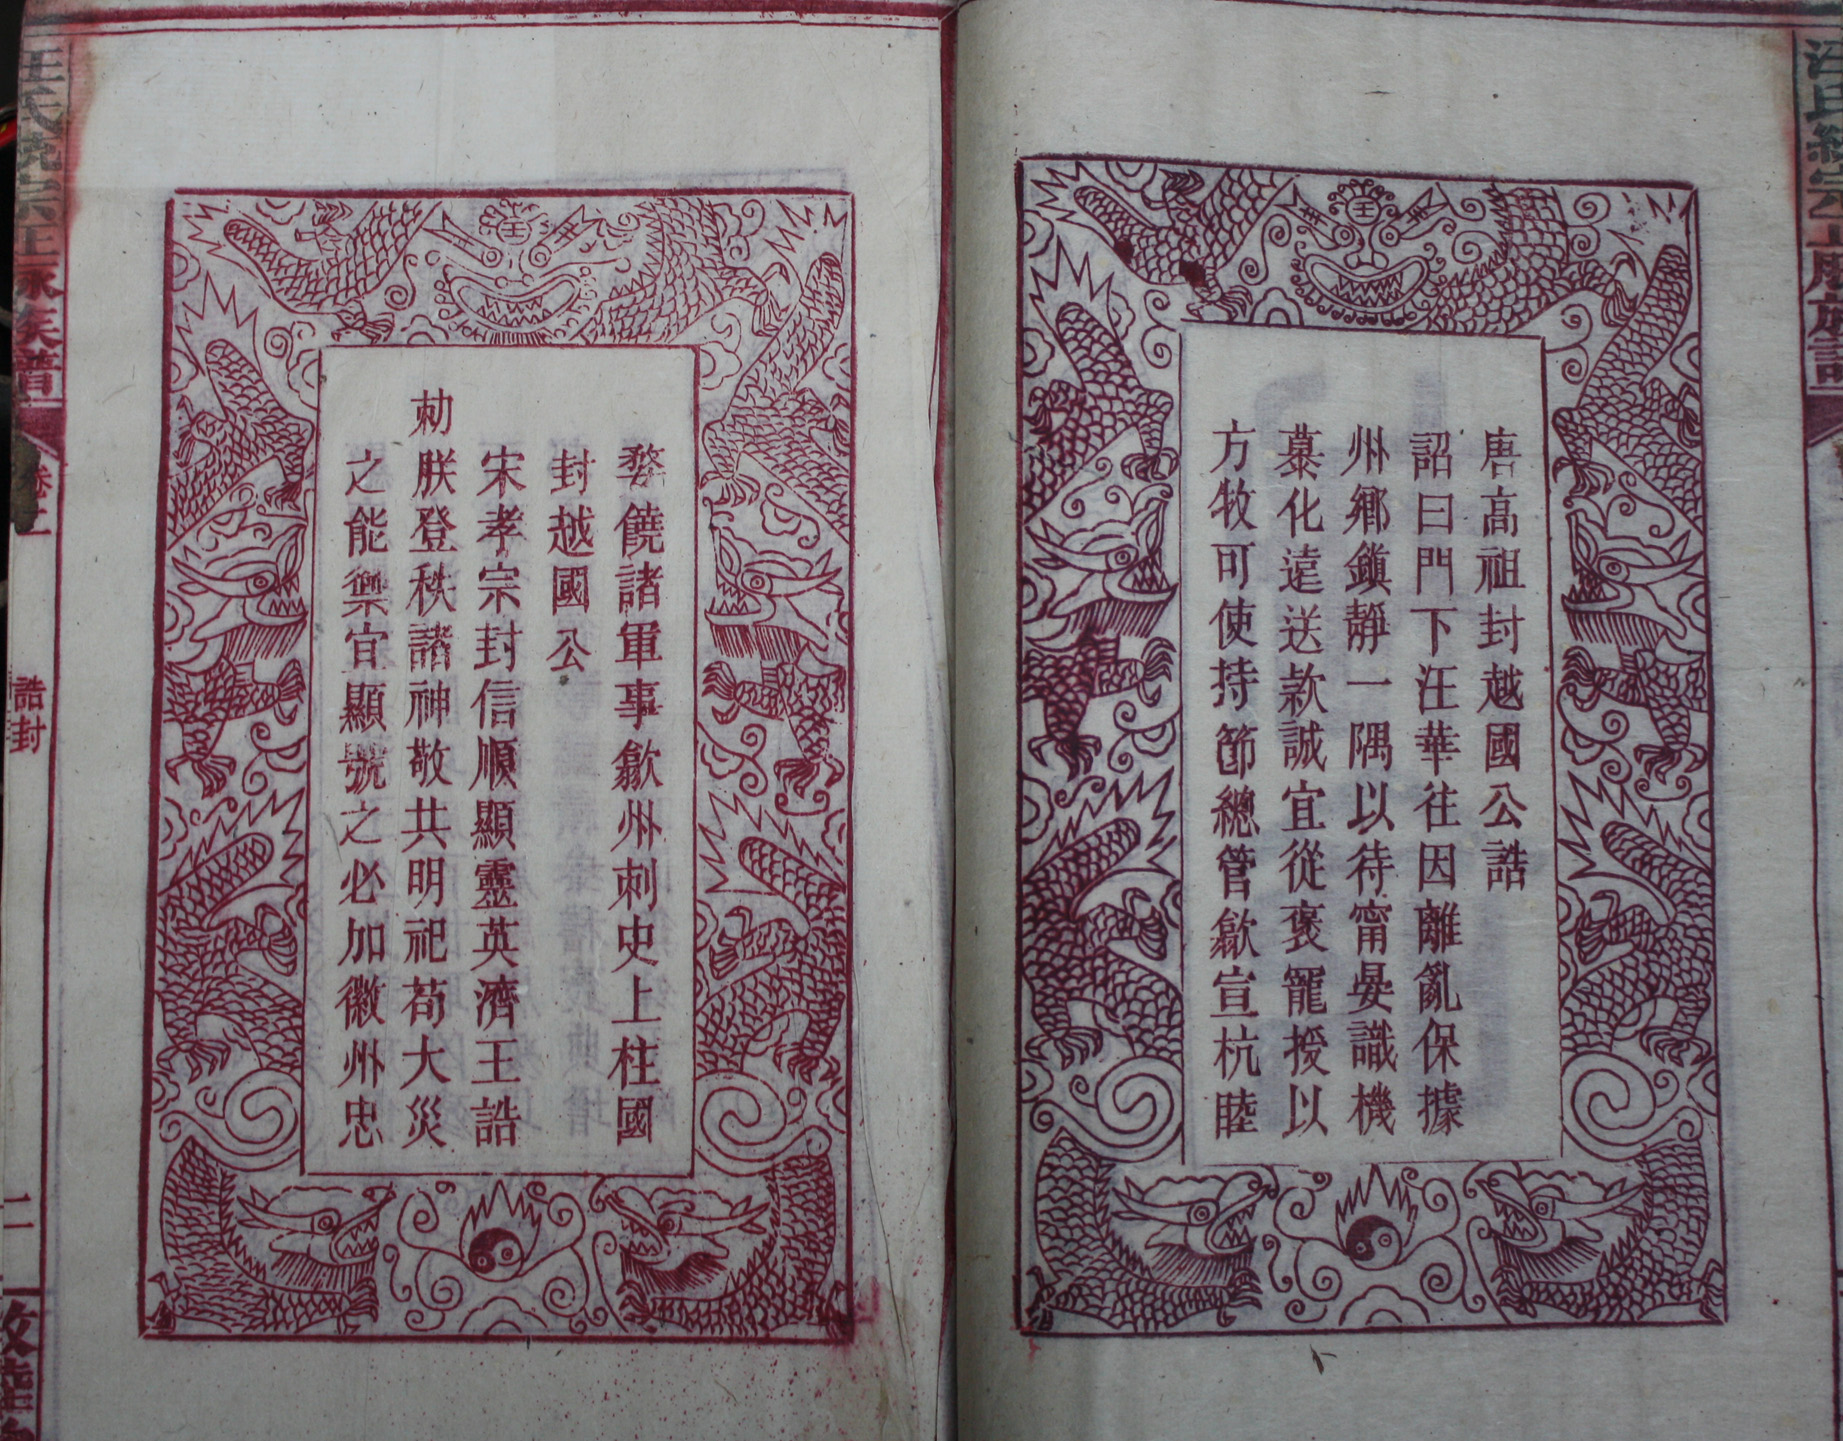 唐高祖封越國公誥
詔曰門下汪華往因離亂保據
州鄉鎮靜一隅以待甯晏識機
慕化遠送款誠宜從褒寵授以
方牧可使持節總管歙宣杭睦
婺饒諸軍事歙州刺史上柱國
封越國公
宋孝宗封信順顯靈英濟王誥
勅朕登秩諸神敬共明祀苟大災
之能禦宜顯號之必加徽州忠
誥封
二